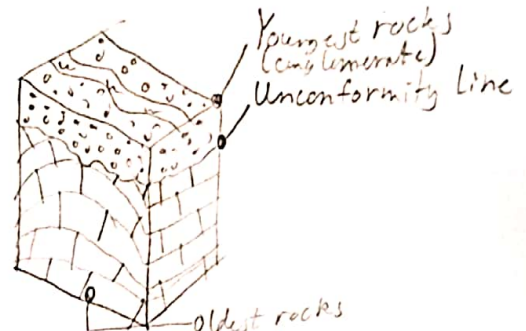 Youngest rocks
(conglomerate)
Unconformity Line
oldest rocks